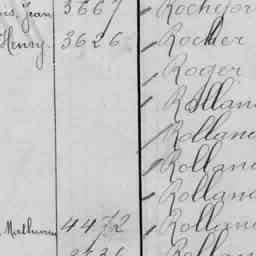 Jean 3667 Rochefor
Henry. 3626 Rocher
Roger
Rolland
Rolland
Rolland
Rolland
Mathurin 4472 Rolland
Rolland